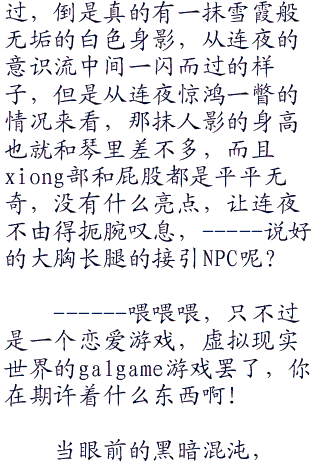 过，倒是真的有一抹雪霞般
无垢的白色身影，从连夜的
意识流中间一闪而过的样
子，但是从连夜惊鸿一瞥的
情况来看，那抹人影的身高
也就和琴里差不多，而且
xiong部和屁股都是平平无
奇，没有什么亮点，让连夜
不由得扼腕叹息，-----说好
的大胸长腿的接引NPC呢？
------喂喂喂，只不过
是一个恋爱游戏，虚拟现实
世界的galgame游戏罢了，你
在期许着什么东西啊！
当眼前的黑暗混沌，